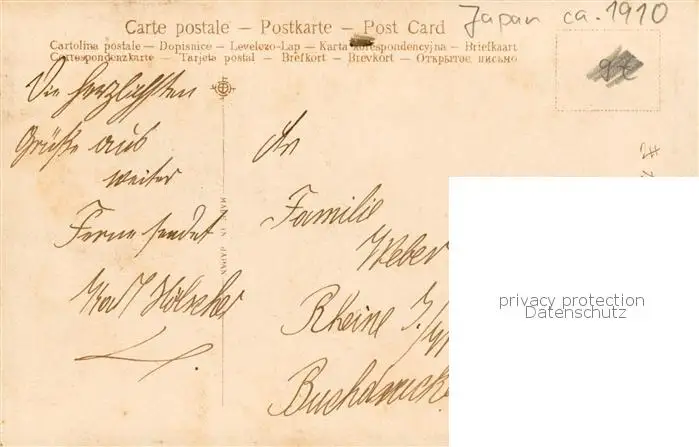 Carte postale — Postkarte — Post Card
Japan ca. 1910
Cartolina postale — Dopisnice — Levelezo-Lap — Karta korespondencyjna — Briefkaart
Correspondenzkarte — Tarjeta postal — Brefkort — Brevkort — Открытое письмо
Die herzlichsten
Grüße aus
weiter
Ferne sendet
Karl Hölscher
MADE IN JAPAN
An
Familie
Weber
Rheine
privacy protection
Datenschutz